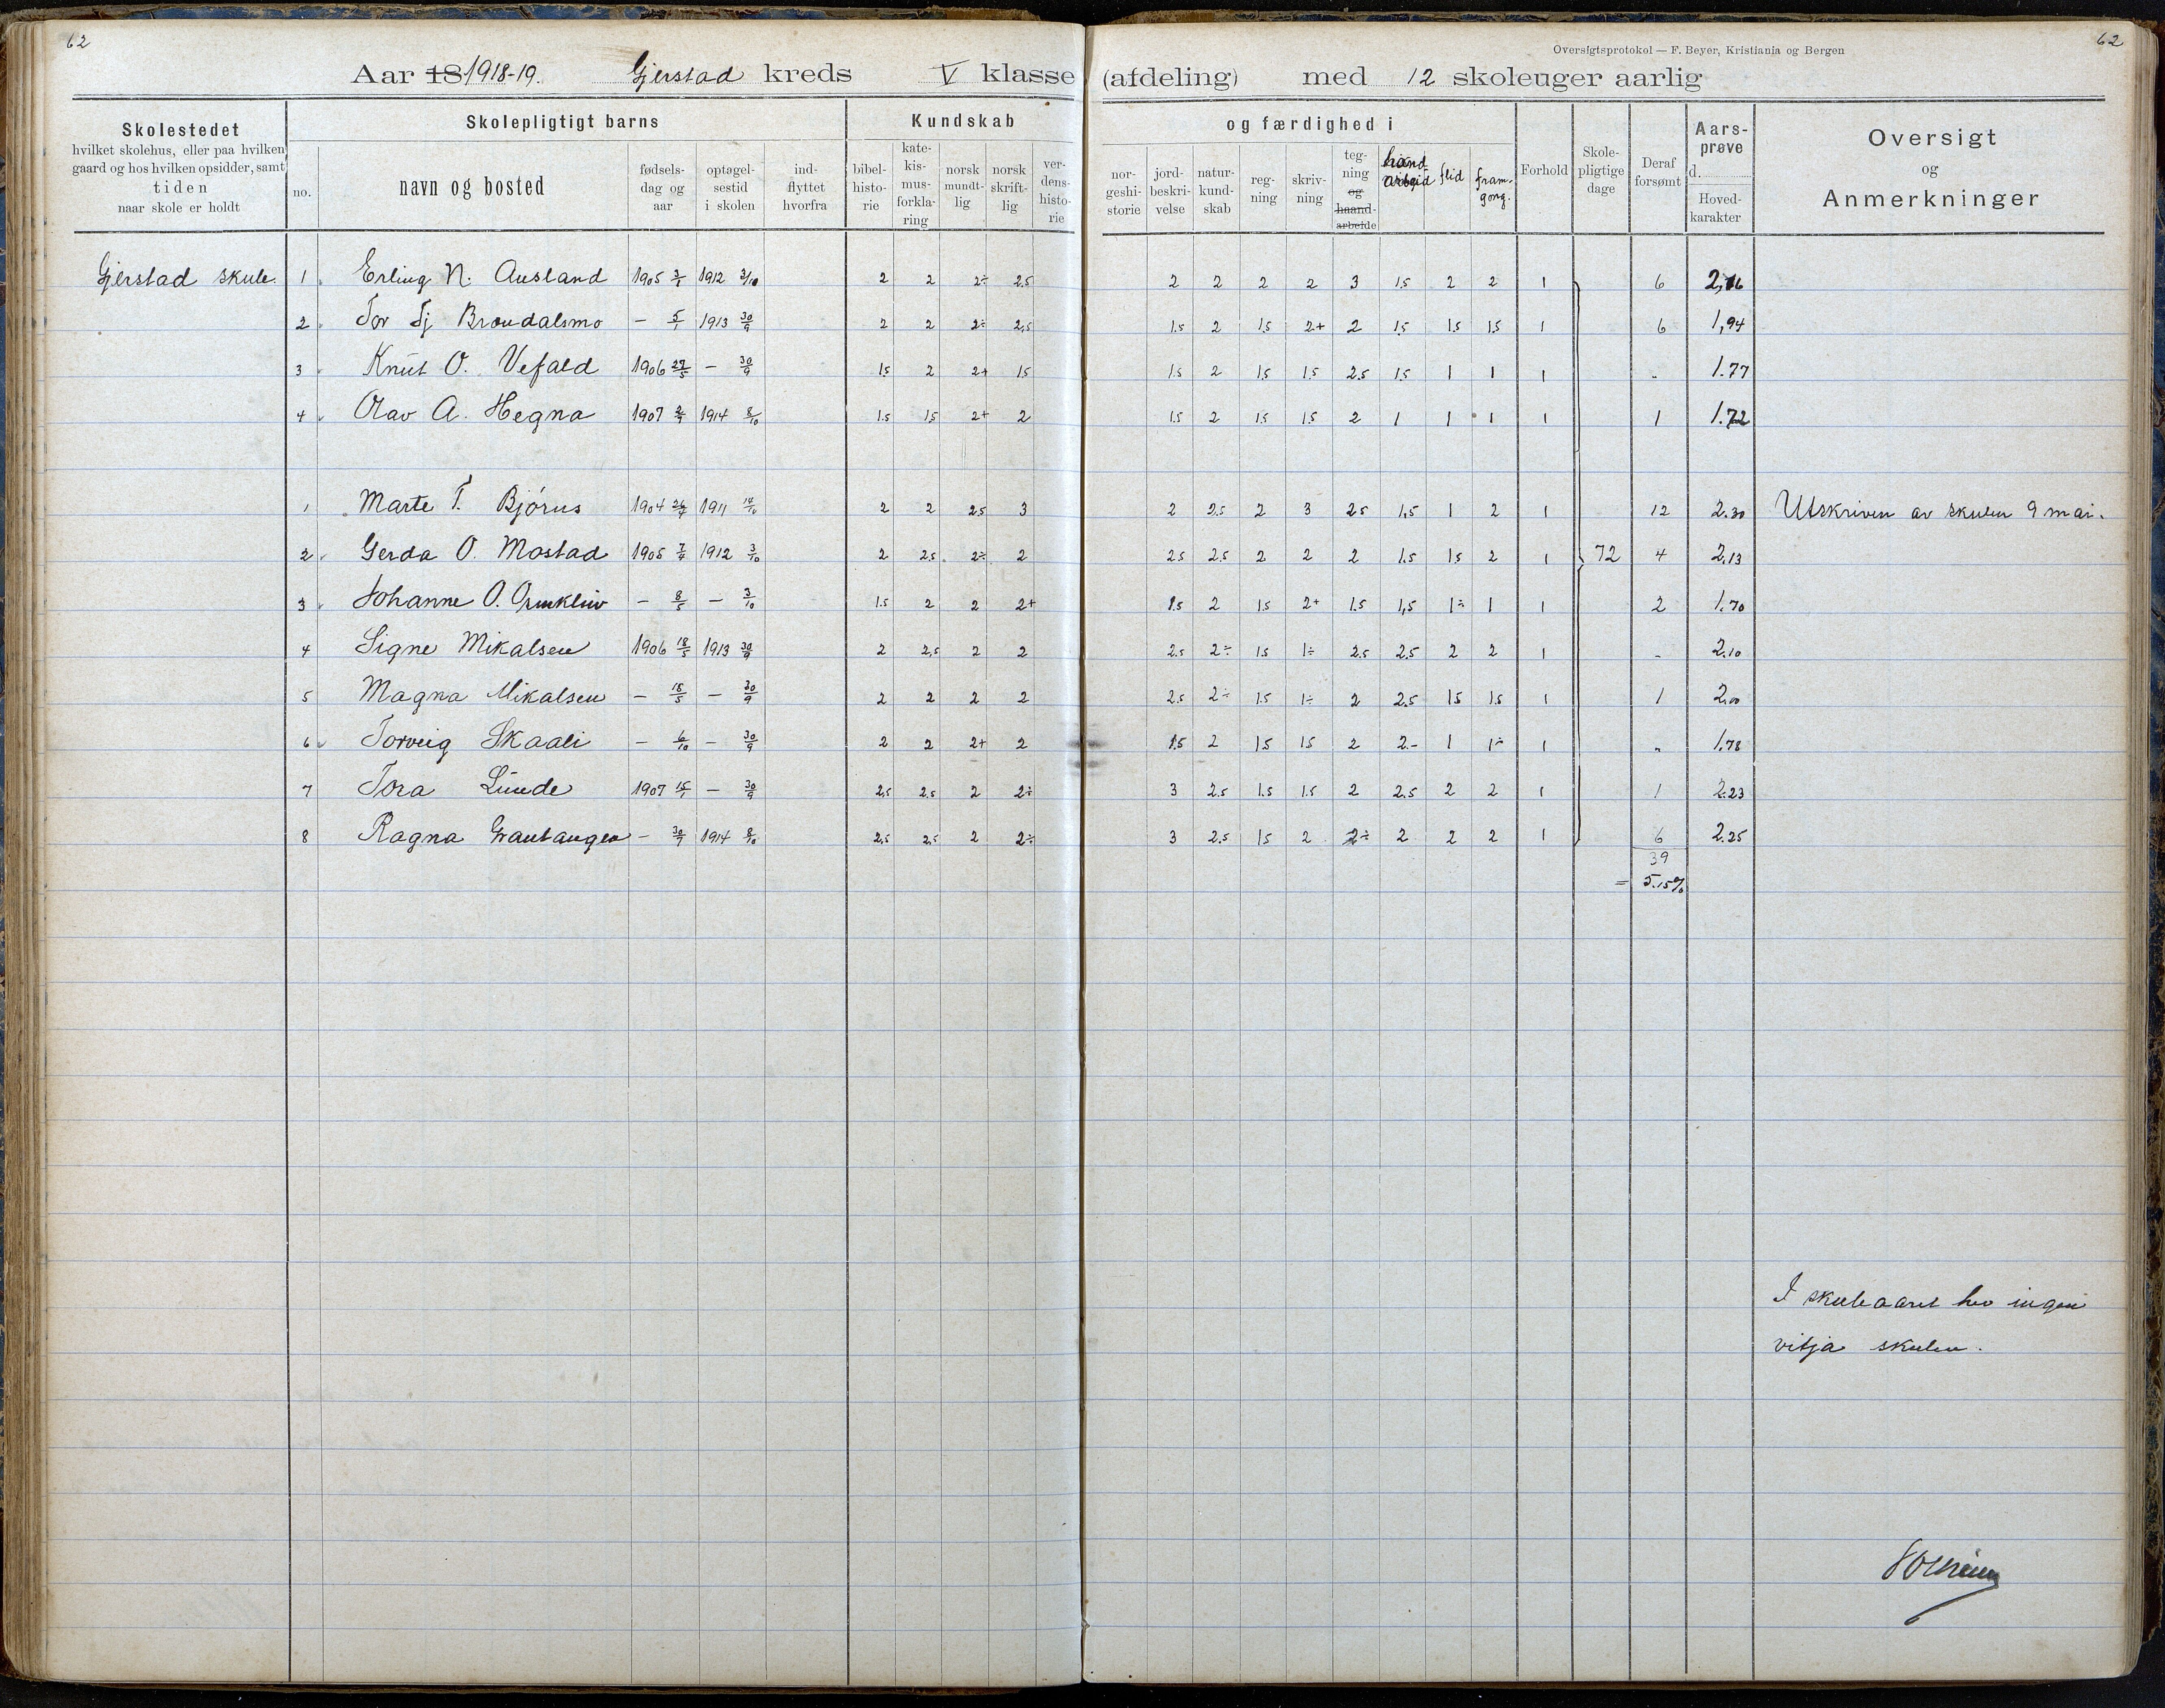 62
62
Oversigtsprotokol — F. Beyer, Kristiania og Bergen
Aar 18 1918-19. Gjerstad kreds V klasse (afdeling) med 12 skoleuger aarlig
Skolestedet
hvilket skolehus, eller paa hvilken
gaard og hos hvilken opsidder, samt
tiden
naar skole er holdt
Skolepligtigt barns
no.
navn og bosted
fødsels-
dag og
aar
optagel-
sestid
i skolen
ind-
flyttet
hvorfra
Kundskab
bibel-
histo-
rie
kate-
kis-
mus-
forkla-
ring
norsk
mundt-
lig
norsk
skrift-
lig
ver-
dens-
histo-
rie
og færdighed i
nor-
geshi-
storie
jord-
beskri-
velse
natur-
kund-
skab
reg-
ning
skriv-
ning
teg-
ning
og
haand-
arbeide
hand
arbeid
flid
fram-
gong.
Forhold
Skole-
pligtige
dage
Deraf
forsømt
Aars-
prøve
d.
Hoved-
karakter
Oversigt
og
Anmerkninger
Gjerstad skule. 1 Erling N. Ausland 1905 3/1 1912 3/10 2 2 2÷ 2.5 2 2 2 2 3 1.5 2 2 1 6 2,16
2 Tor Tj Brøudalsmo — 5/1 1913 30/9 2 2 2÷ 2,5 1.5 2 1.5 2+ 2 1.5 1.5 1.5 1 6 1,94
3 Knut O. Vefald 1906 27/5 — 30/9 1.5 2 2+ 1.5 1.5 2 1.5 1.5 2.5 1.5 1 1 1 „ 1.77
4 Olav A. Hegna 1907 2/9 1914 8/10 1.5 1.5 2+ 2 1.5 2 1.5 1.5 2 1 1 1 1 1 1.72
1 Marte T. Bjórus 1904 26/7 1911 17/10 2 2 2.5 3 2 2.5 2 3 2.5 1,5 1 2 1 12 2.30 Utskriven av skulen 9 mai.
2 Gerda O. Mostad 1905 7/4 1912 3/10 2 2.5 2÷ 2 2.5 2.5 2 2 2 1.5 1.5 2 1 72 4 2.13
3 Johanne O. 8/5 — 3/10 1.5 2 2 2+ 1.5 2 1.5 2+ 1.5 1,5 1÷ 1 1 2 1.70
4 Signe Mikalsen 1906 18/5 1913 30/9 2 2,5 2 2 2.5 2÷ 1.5 1÷ 2.5 2.5 2 2 1 „ 2.10
5 Magna Mikalsen — 18/5 — 30/9 2 2 2 2 2.5 2÷ 1.5 1÷ 2 2.5 1.5 1.5 1 1 2.00
6 Torveig Skaali — 6/10 — 30/9 2 2 2+ 2 1.5 2 1.5 1.5 2 2- 1 1÷ 1 „ 1.78
7 Tora Lunde 1907 15/1 — 30/9 2,5 2.5 2 2÷ 3 2.5 1.5 1.5 2 2.5 2 2 1 1 2.23
8 Ragna — 30/9 1914 8/10 2,5 2,5 2 2÷ 3 2.5 1.5 2 2÷ 2 2 2 1 6 2.25
39
= 5.15%
I skuleaaret hev ingen
vitja skulen.